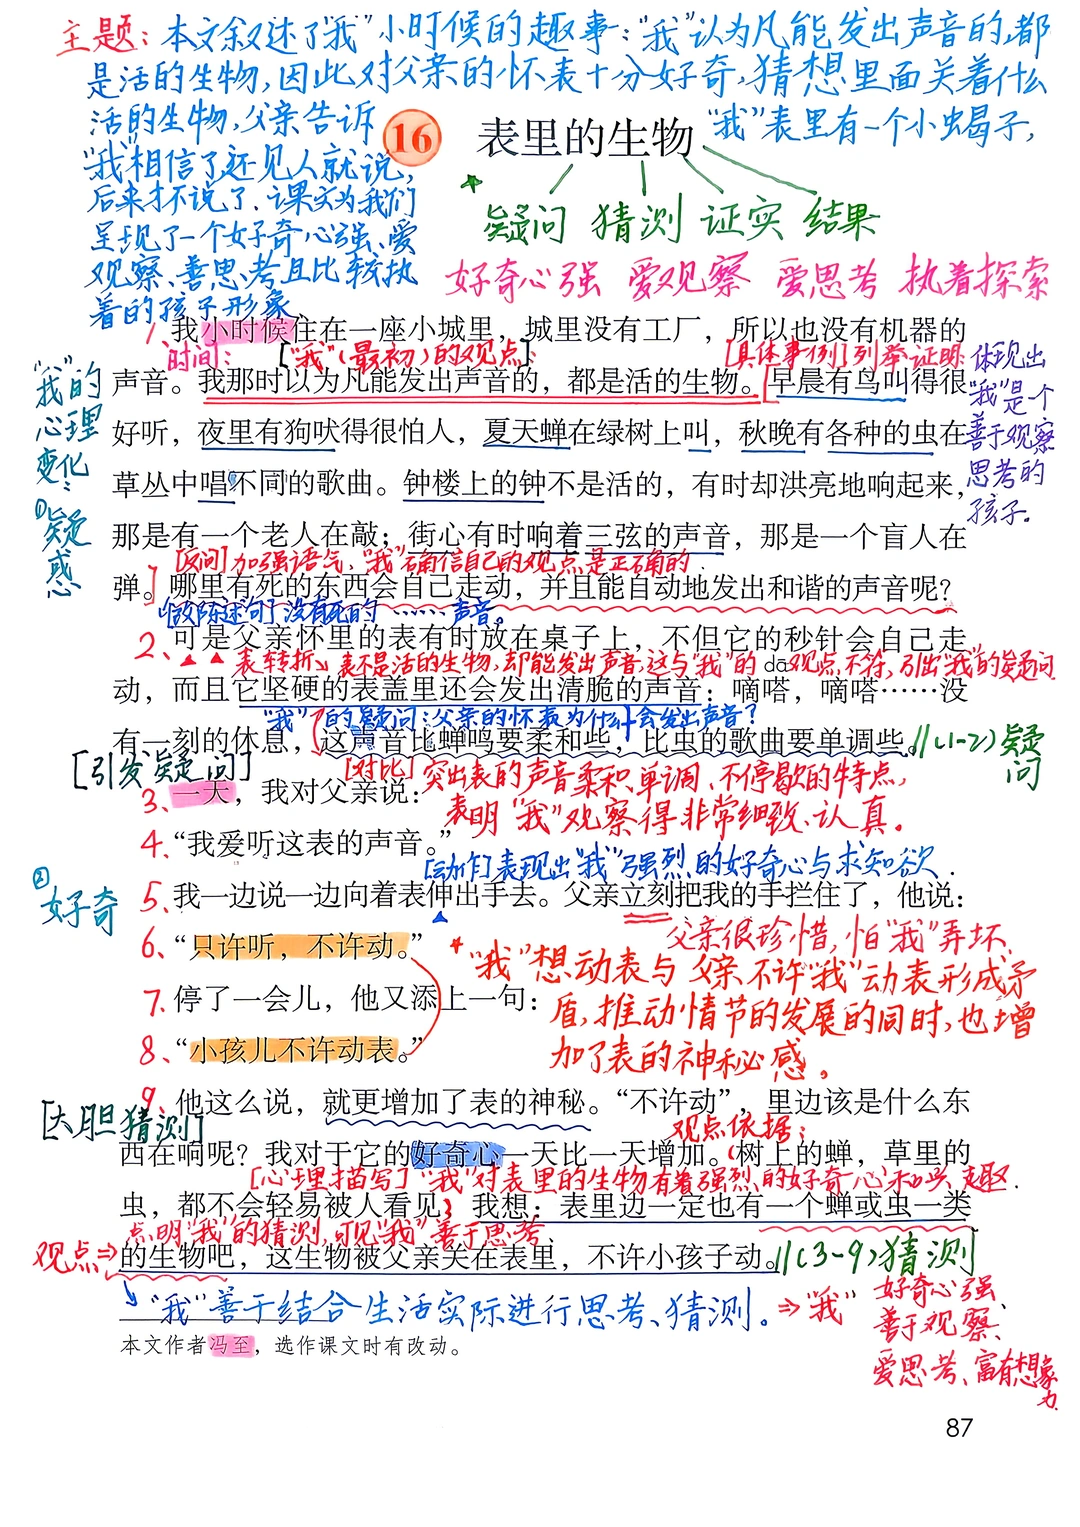 主题：本文叙述了“我”小时候的趣事：“我”认为凡能发出声音的，都
是活的生物，因此对父亲的怀表十分好奇，猜想里面关着什么
活的生物，父亲告诉“我”表里有一个小虫蝎子，
“我”相信了，还见人就说，
后来才不说了．课文为我们
呈现了一个好奇心强、爱
观察、善思、考且比较执
着的孩子形象
16 表里的生物
疑问 猜测 证实 结果
好奇心强 爱观察 爱思考 执着探索
1、我小时候住在一座小城里，城里没有工厂，所以也没有机器的
时间： [“我”(最初)的观点： [具体事例]列举证明：
声音。我那时以为凡能发出声音的，都是活的生物。早晨有鸟叫得很
好听，夜里有狗吠得很怕人，夏天蝉在绿树上叫，秋晚有各种的虫在
草丛中唱不同的歌曲。钟楼上的钟不是活的，有时却洪亮地响起来，
体现出
“我”是个
善于观察
思考的
孩子．
“我”的
心理
变化：
①疑惑
那是有一个老人在敲；街心有时响着三弦的声音，那是一个盲人在
[反问]加强语气，“我”确信自己的观点是正确的．
弹。哪里有死的东西会自己走动，并且能自动地发出和谐的声音呢？
[改陈述句]没有死的……声音。
2、可是父亲怀里的表有时放在桌子上，不但它的秒针会自己走
表转折，表不是活的生物，却能发出声音，这与“我”的观点不符，引出“我”的疑问．
dā
动，而且它坚硬的表盖里还会发出清脆的声音：嘀嗒，嘀嗒……没
“我”的疑问：父亲的怀表为什么会发出声音？
有一刻的休息，这声音比蝉鸣要柔和些，比虫的歌曲要单调些。//(1-2)疑问
[引发疑问]
[对比]突出表的声音柔和、单调、不停歇的特点，
3、一天，我对父亲说：
表明“我”观察得非常细致、认真。
4、“我爱听这表的声音。”
[动作]表现出“我”强烈的好奇心与求知欲．
②好奇
5、我一边说一边向着表伸出手去。父亲立刻把我的手拦住了，他说：
父亲很珍惜，怕“我”弄坏．
6、“只许听，不许动。”
“我”想动表与父亲不许“我”动表形成矛
7、停了一会儿，他又添上一句：
盾，推动情节的发展的同时，也增
8、“小孩儿不许动表。”
加了表的神秘感。
9、他这么说，就更增加了表的神秘。“不许动”，里边该是什么东
[大胆猜测]
观点依据：
西在响呢？我对于它的好奇心一天比一天增加。树上的蝉，草里的
[心理描写]“我”对表里的生物有着强烈的好奇心和兴趣．
虫，都不会轻易被人看见，我想：表里边一定也有一个蝉或虫一类
点明“我”的猜测，可见“我”善于思考、
观点⇒的生物吧，这生物被父亲关在表里，不许小孩子动。//(3-9)猜测
“我”善于结合生活实际进行思考、猜测。⇒“我”
好奇心强、
善于观察、
爱思考、富有想象力．
本文作者冯至，选作课文时有改动。
87